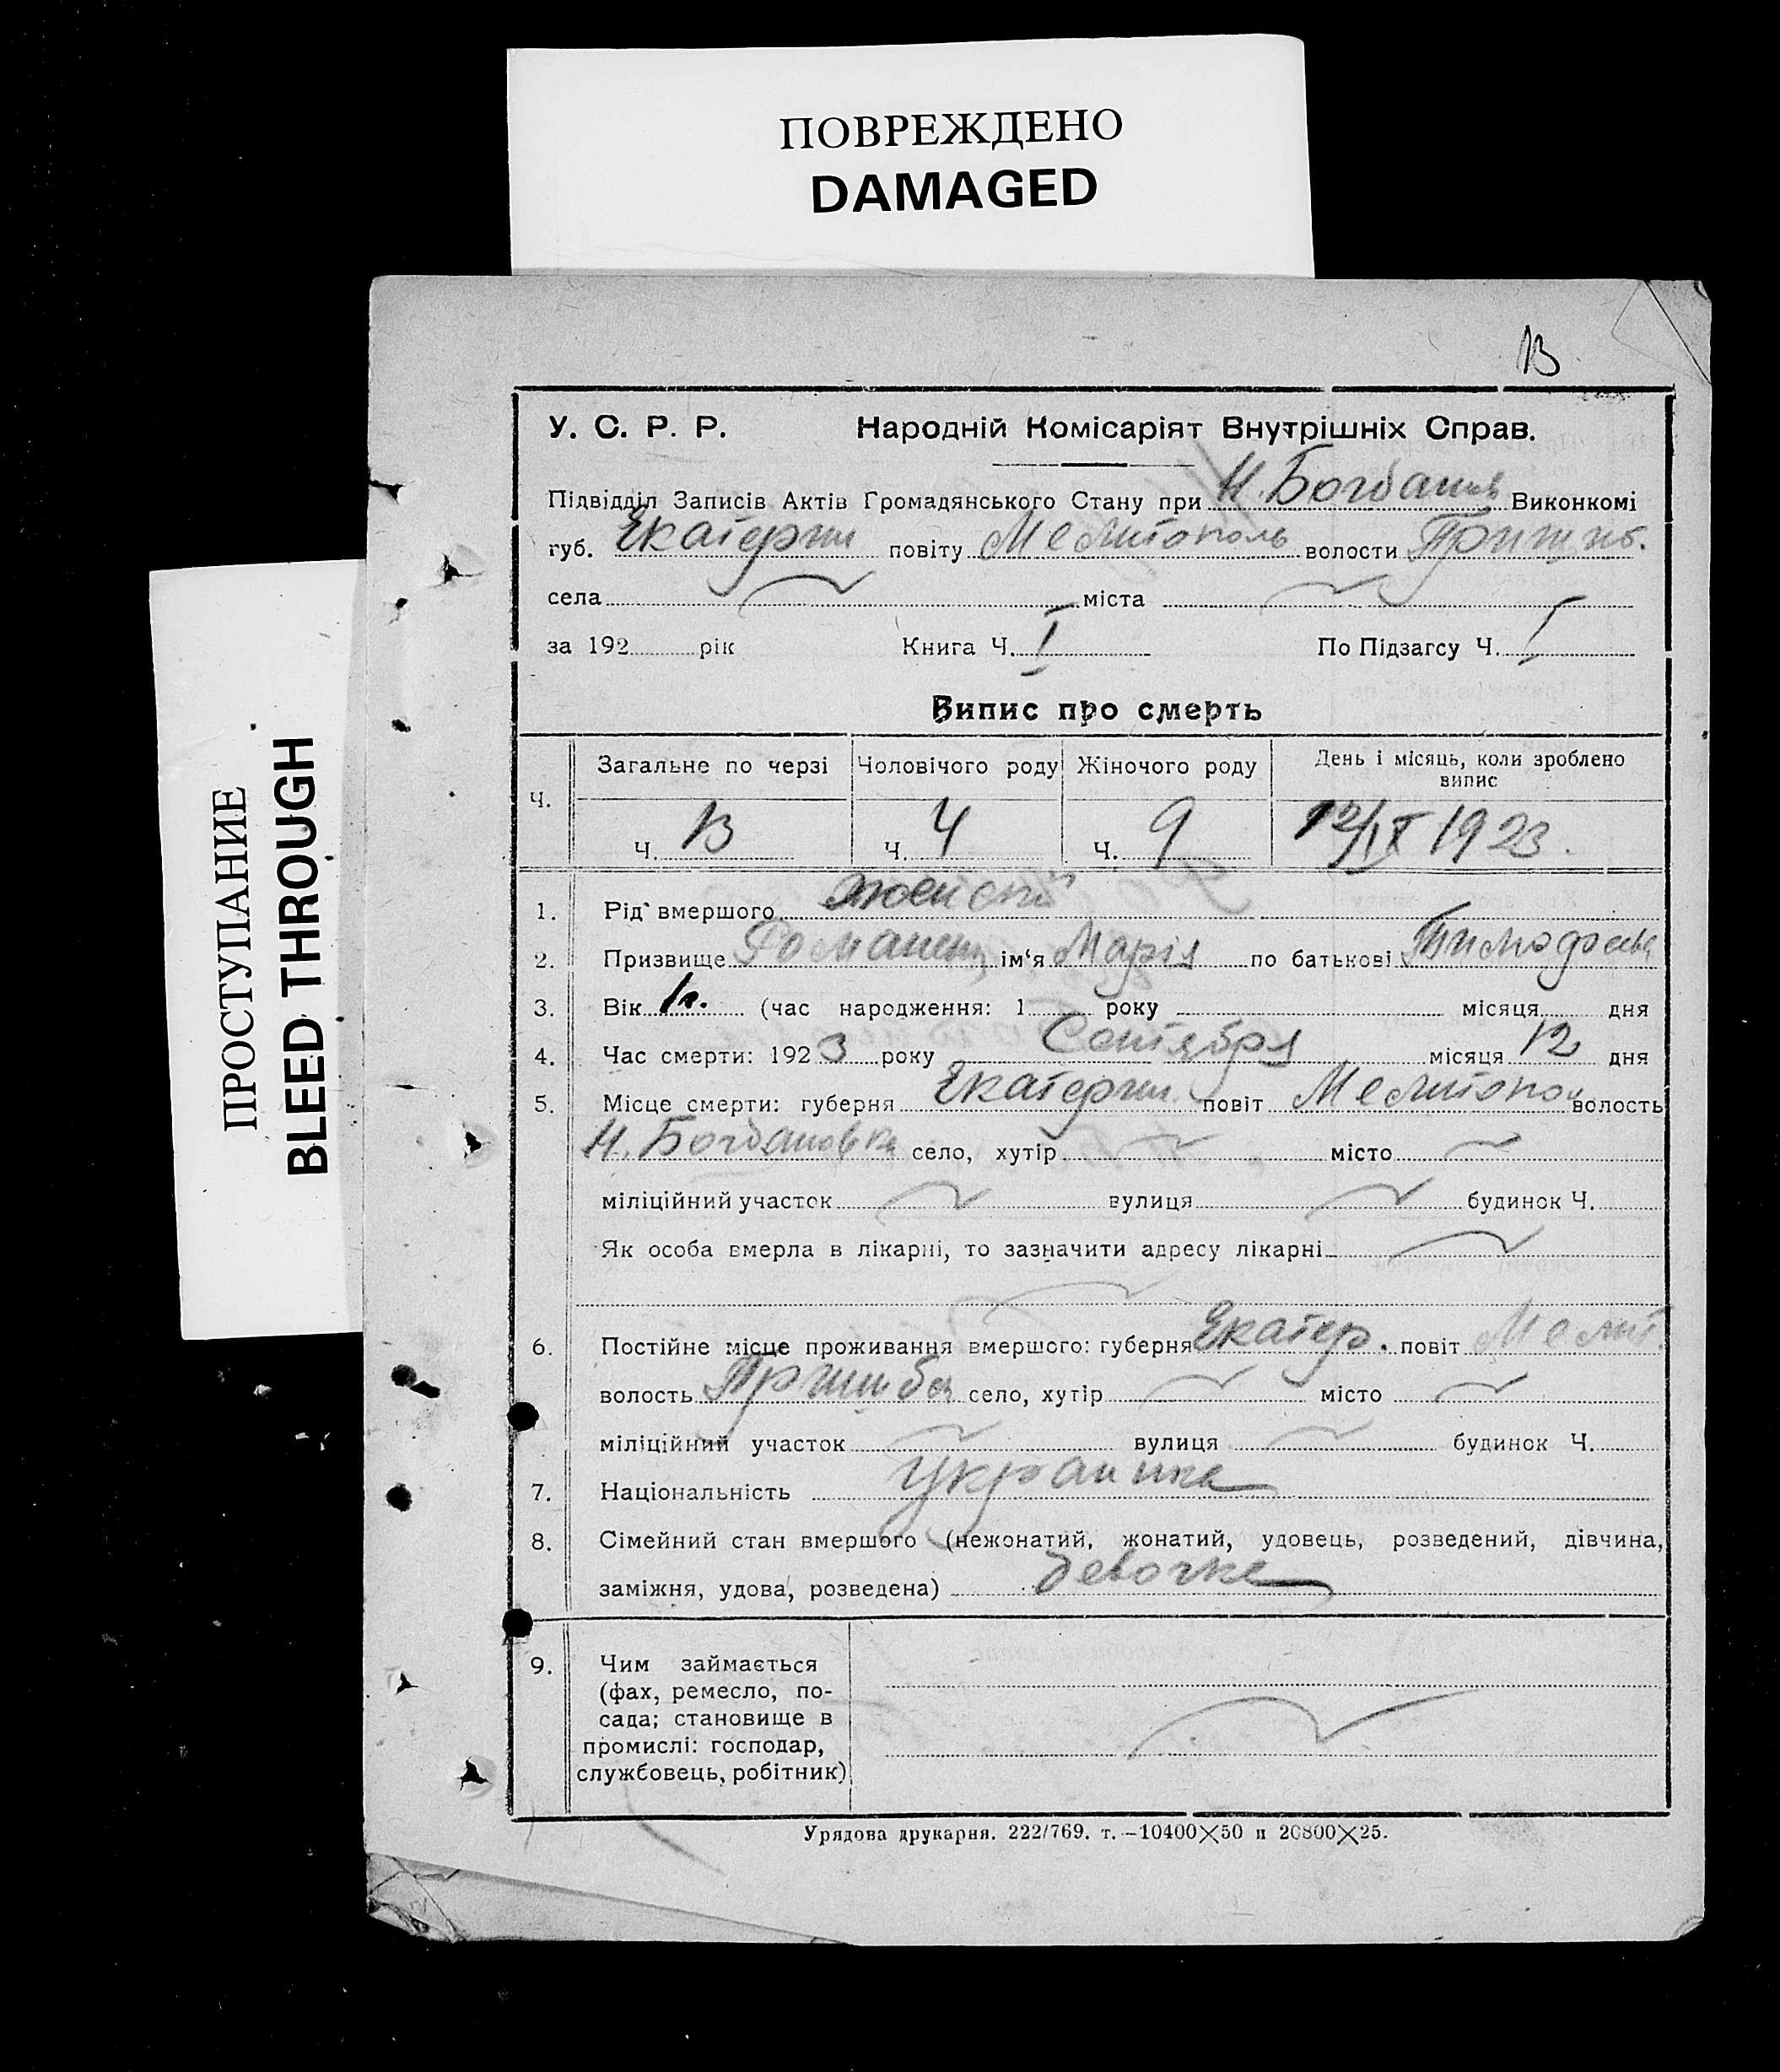 ПОВРЕЖДЕНО
DAMAGED
ПРОСТУПАНИЕ
BLEED THROUGH
13
У. С. Р. Р. Народній Комісаріят Внутрішніх Справ.
Підвідділ Записів Актів Громадянського Стану при Н. Богданов Виконкомі
губ. Екатерин повіту Мелитополь волости Пришиб.
села міста
за 192 рік Книга Ч. I По Підзагсу Ч. I
Випис про смерть
Ч. Загальне по черзі Чоловічого роду Жіночого роду День і місяць, коли зроблено випис
Ч. 13 Ч. 4 Ч. 9 12/IX 1923.
1. Рід вмершого женский
2. Призвище Романенц ім‘я Марія по батькові Тимофеева
3. Вік 1г. (час народження: 1 року місяця дня
4. Час смерти: 1923 року Сентября місяця 12 дня
5. Місце смерти: губерня Екатерин. повіт Мелитопол волость
Н. Богдановка село, хутір місто
міліційний участок вулиця будинок Ч.
Як особа вмерла в лікарні, то зазначити адресу лікарні
6. Постійне місце проживання вмершого: губерня Екатер. повіт Мелит.
волость Пришиб село, хутір місто
міліційний участок вулиця будинок Ч.
7. Національність Украинка
8. Сімейний стан вмершого (нежонатий, жонатий, удовець, розведений, дівчина,
заміжня, удова, розведена) девочка
9. Чим займається
(фах, ремесло, по-
сада; становище в
промислі: господар,
службовець, робітник)
Урядова друкарня. 222/769. т. –10400×50 п 20800×25.